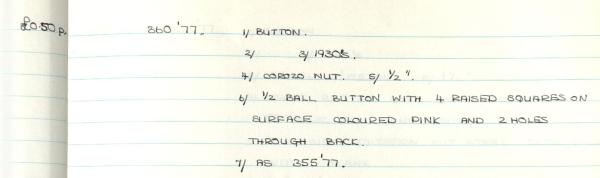 £0.50 p. 360 '77. 1/ BUTTON.
2/ 3/ 1930's.
4/ COROZO NUT. 5/ 1/2 ".
6/ 1/2 BALL BUTTON WITH 4 RAISED SQUARES ON
SURFACE COLOURED PINK AND 2 HOLES
THROUGH BACK.
7/ AS 355 '77.